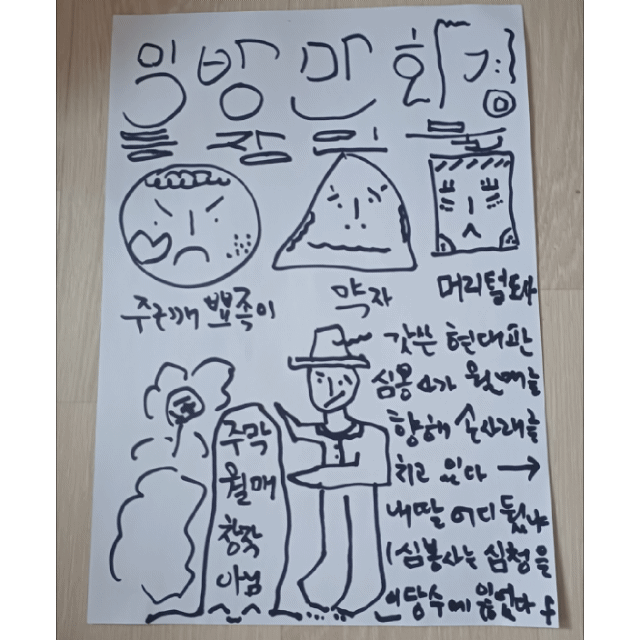 만화경
등장인물
주근깨 뾰족이
약자
머리털도사
갓쓴 현대판
심봉사가 월매를
향해 손사래를
치고 있다 →
내딸 어디뒀냐
(심봉사는 심청을
인당수에 잃었다)
주막
월매
창작
아님